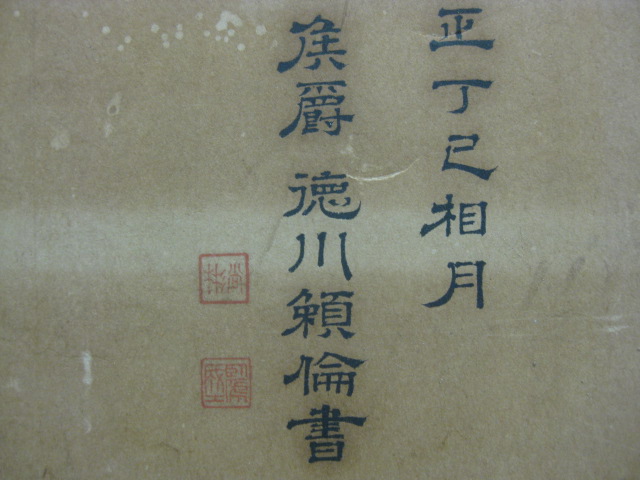 正丁巳相月
侯爵徳川頼倫書